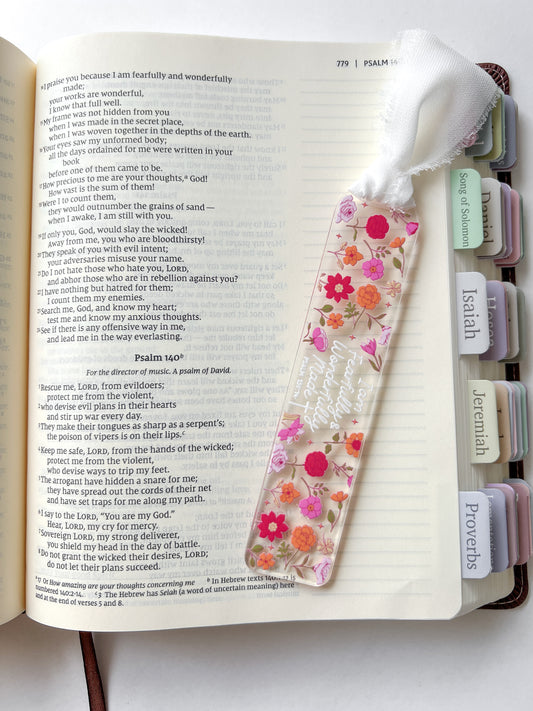 779 | PSALM
14 I praise you because I am fearfully and wonderfully
made;
your works are wonderful,
I know that full well.
15 My frame was not hidden from you
when I was made in the secret place,
when I was woven together in the depths of the earth.
16 Your eyes saw my unformed body;
all the days ordained for me were written in your
book
before one of them came to be.
17 How precious to me are your thoughts,a God!
How vast is the sum of them!
18 Were I to count them,
they would outnumber the grains of sand—
when I awake, I am still with you.
19 If only you, God, would slay the wicked!
Away from me, you who are bloodthirsty!
20 They speak of you with evil intent;
your adversaries misuse your name.
21 Do I not hate those who hate you, LORD,
and abhor those who are in rebellion against you?
22 I have nothing but hatred for them;
I count them my enemies.
23 Search me, God, and know my heart;
test me and know my anxious thoughts.
24 See if there is any offensive way in me,
and lead me in the way everlasting.
Psalm 140b
For the director of music. A psalm of David.
1 Rescue me, LORD, from evildoers;
protect me from the violent,
2 who devise evil plans in their hearts
and stir up war every day.
3 They make their tongues as sharp as a serpent's;
the poison of vipers is on their lips.c
4 Keep me safe, LORD, from the hands of the wicked;
protect me from the violent,
who devise ways to trip my feet.
5 The arrogant have hidden a snare for me;
they have spread out the cords of their net
and have set traps for me along my path.
6 I say to the LORD, "You are my God."
Hear, LORD, my cry for mercy.
7 Sovereign LORD, my strong deliverer,
you shield my head in the day of battle.
8 Do not grant the wicked their desires, LORD;
do not let their plans succeed.
a 17 Or How amazing are your thoughts concerning me b In Hebrew texts 140:
numbered 140:2-14. c 3 The Hebrew has Selah (a word of uncertain meaning) here
and at the end of verses 5 and 8.
I am
Fearfully &
Wonderfully
Made
Song of Solomon
Daniel
Isaiah
Hosea
Jeremiah
Proverbs